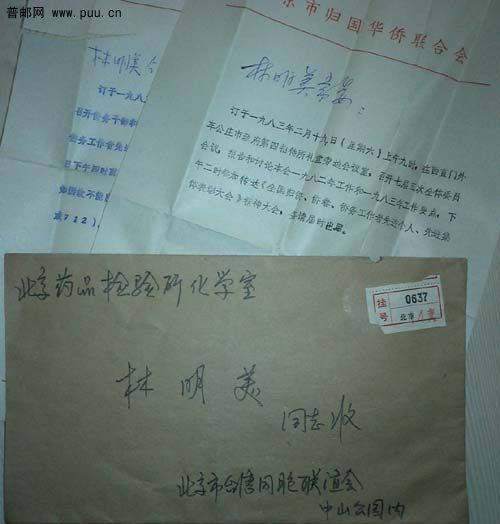 普邮网
www.puu.cn
京市归国华侨联合会
林明美常委:
订于一九八三年二月十九日(星期六)上午九时,在西直门外
车公庄市政府第四招待所礼堂旁边会议室,召开七届三次全体委员
会议,报告和讨论本会一九八二年工作和一九八三年工作要点,下
午二时参加传达《全国归侨、侨眷、侨务工作者先进个人、先进集
体表彰大会》精神大会,务请届时出席。
林明美
订于一九八
召开侨务干部和
侨务工作者先进
日下午四时
如因故不能
或712)。
北京药品检验所化学室
挂号
0637
北京
林明美
同志收
北京市台湾同胞联谊会
中山公园内